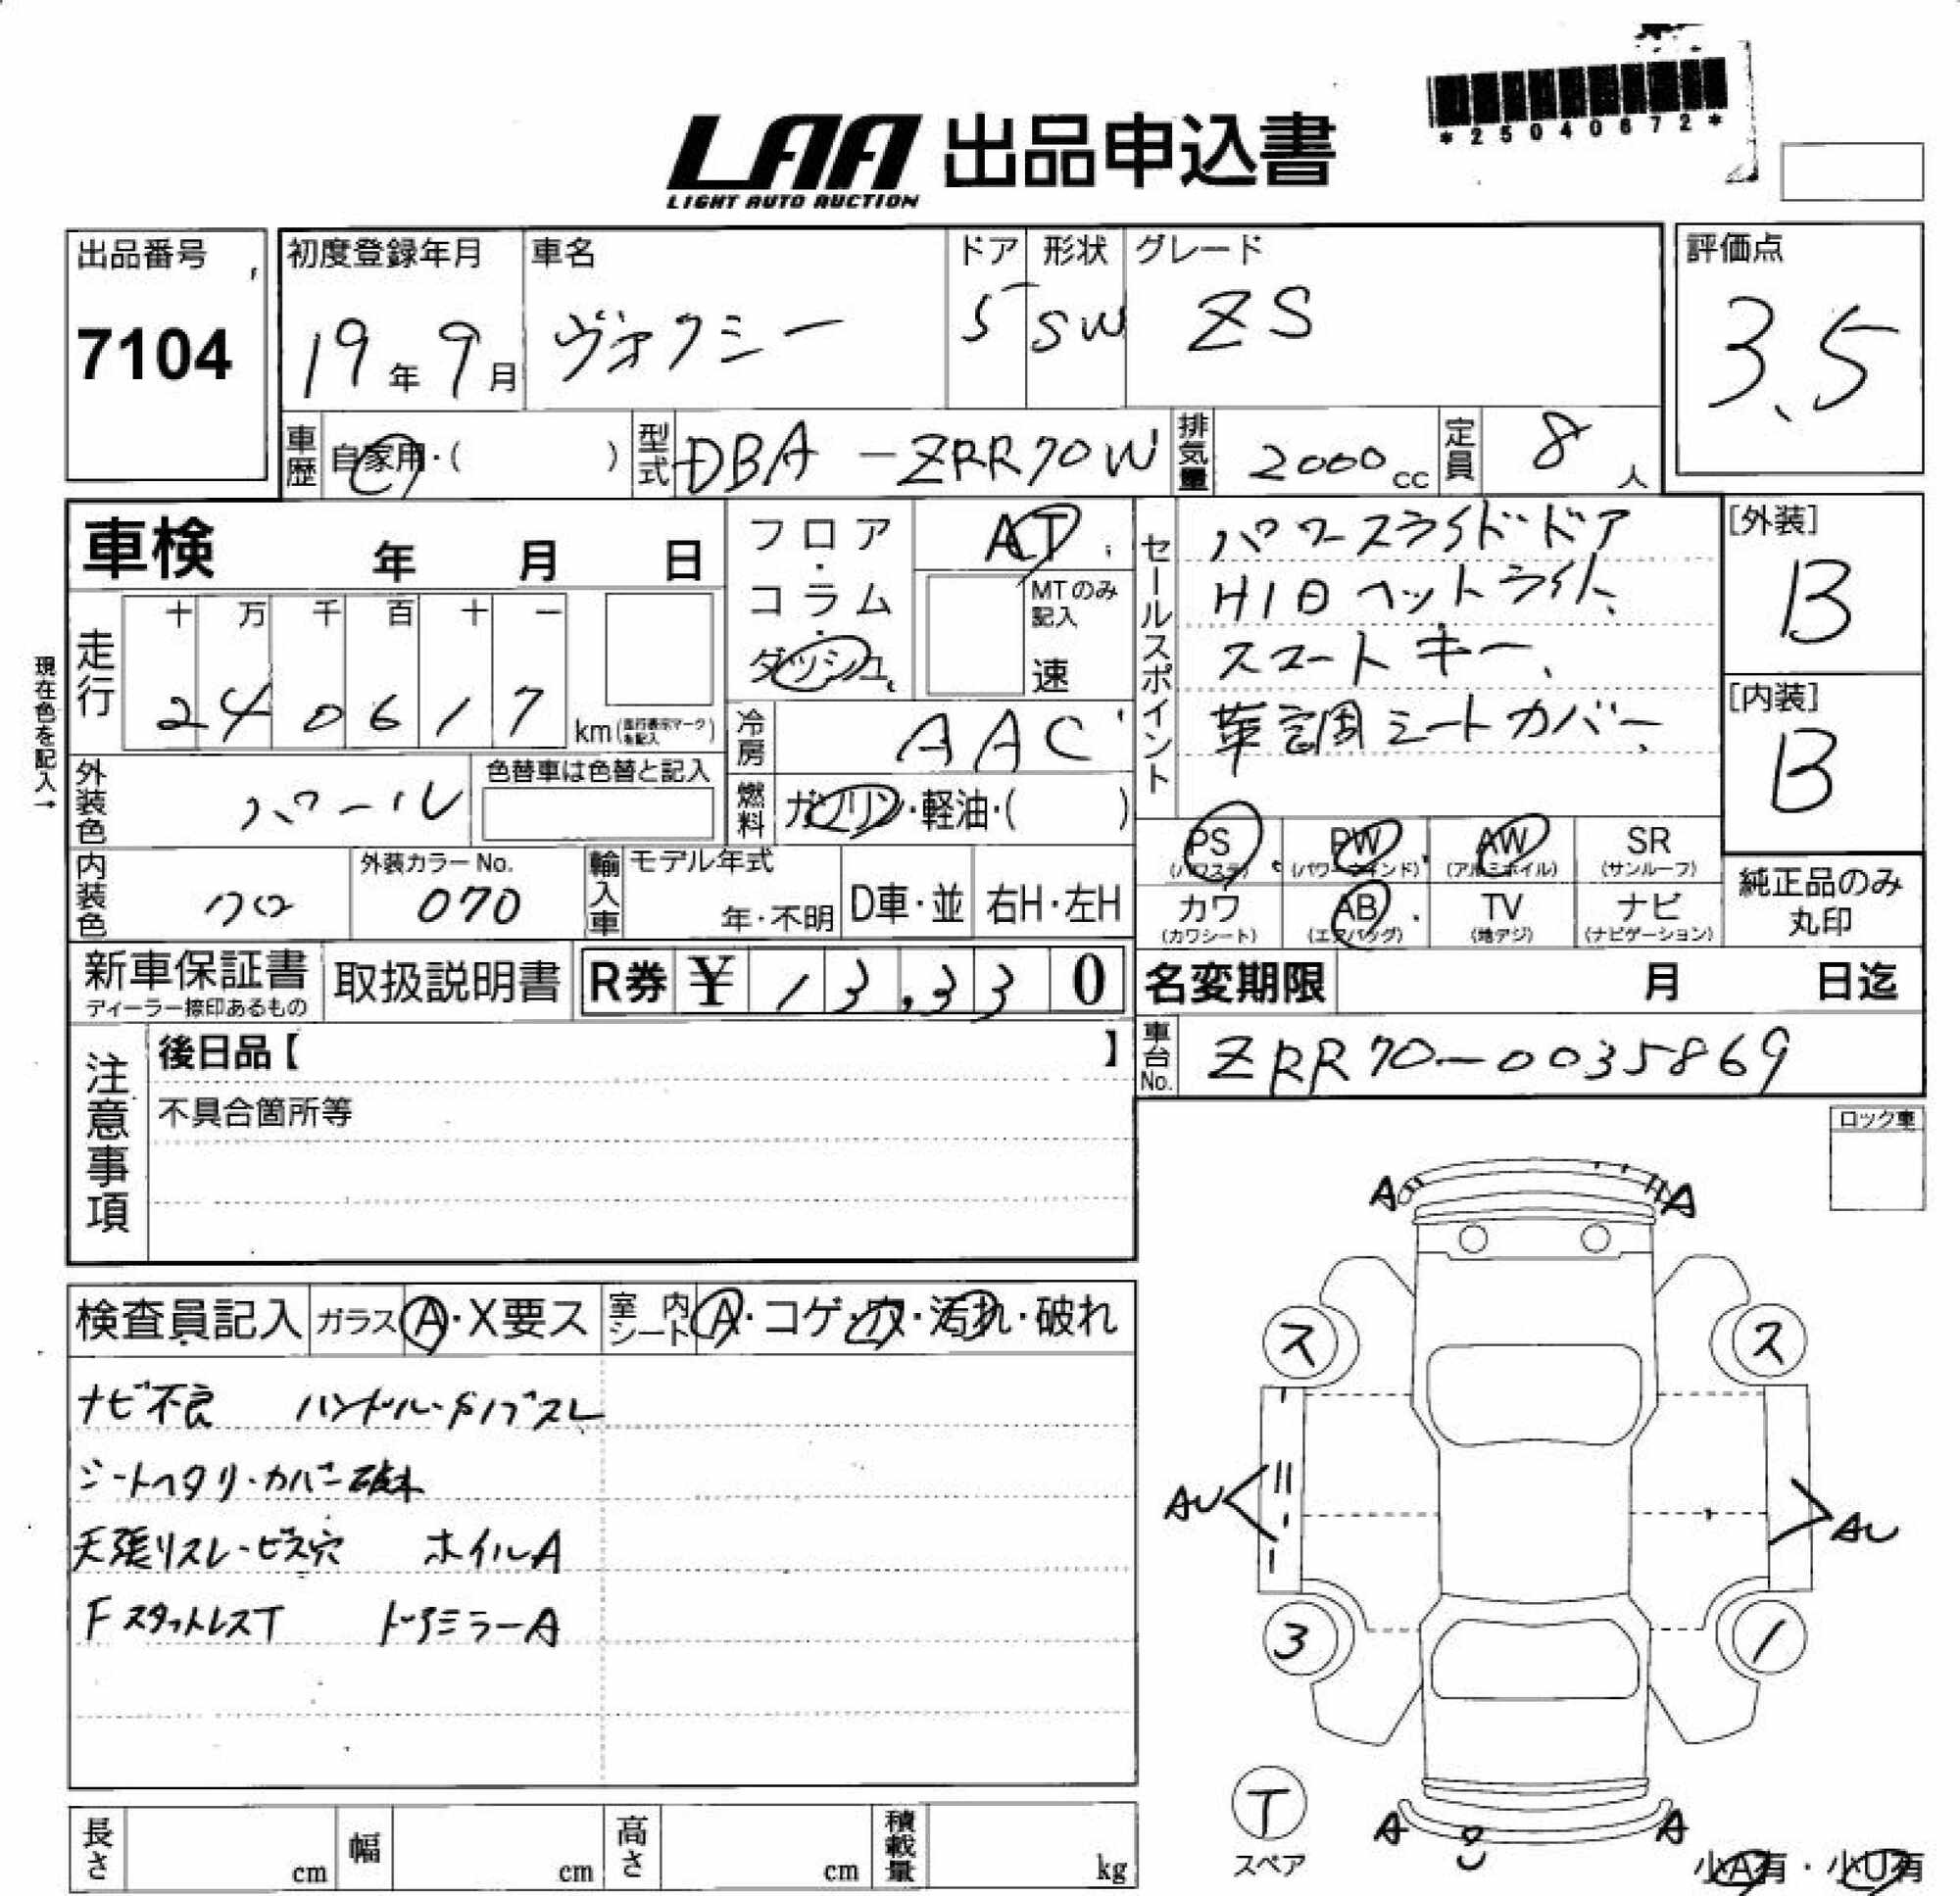 *25040672*
LAA 出品申込書
LIGHT AUTO AUCTION
出品番号
7104
初度登録年月
19年9月
車名
ヴォクシー
ドア
5
形状
SW
グレード
ZS
評価点
3.5
車歴
自家用・( )
型式
DBA-ZRR70W
排気量
2000cc
定員
8人
車検 年 月 日
フロア・コラム・ダッシュ
AT
MTのみ記入
速
走行
十 万 千 百 十 一
2 4 0 6 1 7
km(走行表示マークを記入)
現在色を記入→
冷房
AAC
燃料
ガソリン・軽油・( )
外装色
パール
色替車は色替と記入
内装色
クロ
外装カラーNo.
070
輸入車
モデル年式
年・不明
D車・並
右H・左H
セールスポイント
パワースライドドア
HIDヘットライト、
スマートキー、
革調シートカバー
[外装]
B
[内装]
B
PS
(パワステ)
PW
(パワーウインド)
AW
(アルミホイル)
SR
(サンルーフ)
カワ
(カワシート)
AB
(エアバッグ)
TV
(地デジ)
ナビ
(ナビゲーション)
純正品のみ
丸印
新車保証書
ディーラー捺印あるもの
取扱説明書
R券 ¥ 13,330
名変期限 月 日迄
車台No.
ZRR70-0035869
注意事項
後日品【 】
不具合箇所等
ロック車
検査員記入
ガラス A・X要ス
室内シート A・コゲ・穴・汚れ・破れ
ナビ不良 ハンドル・ダッシュスレ
シートヘタリ・カバー破れ
天張リスレ・ビス穴 ホイルA
FスタットレスT ドアミラーA
A A
ス ス
AU AU
3 1
T
スペア
A A
U
小A有・小U有
長さ cm
幅 cm
高さ cm
積載量 kg